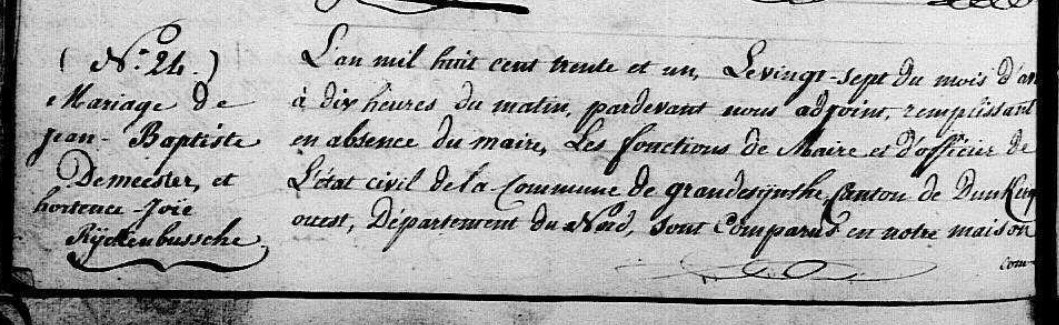 (N.° 24.)
Mariage de
Jean-Baptiste
Demeester, et
hortence-Joïe
Rÿckenbussche
L'an mil huit cent trente et un, Le vingt-sept du mois d'a
à dix heures du matin, pardevant nous adjoint, remplissant
en absence du maire, Les fonctions de Maire et d'officier de
L'état civil de la Commune de grandesÿnthe, Canton de Dunkerq
ouest, Département du Nord, sont Comparus en notre maison
com-